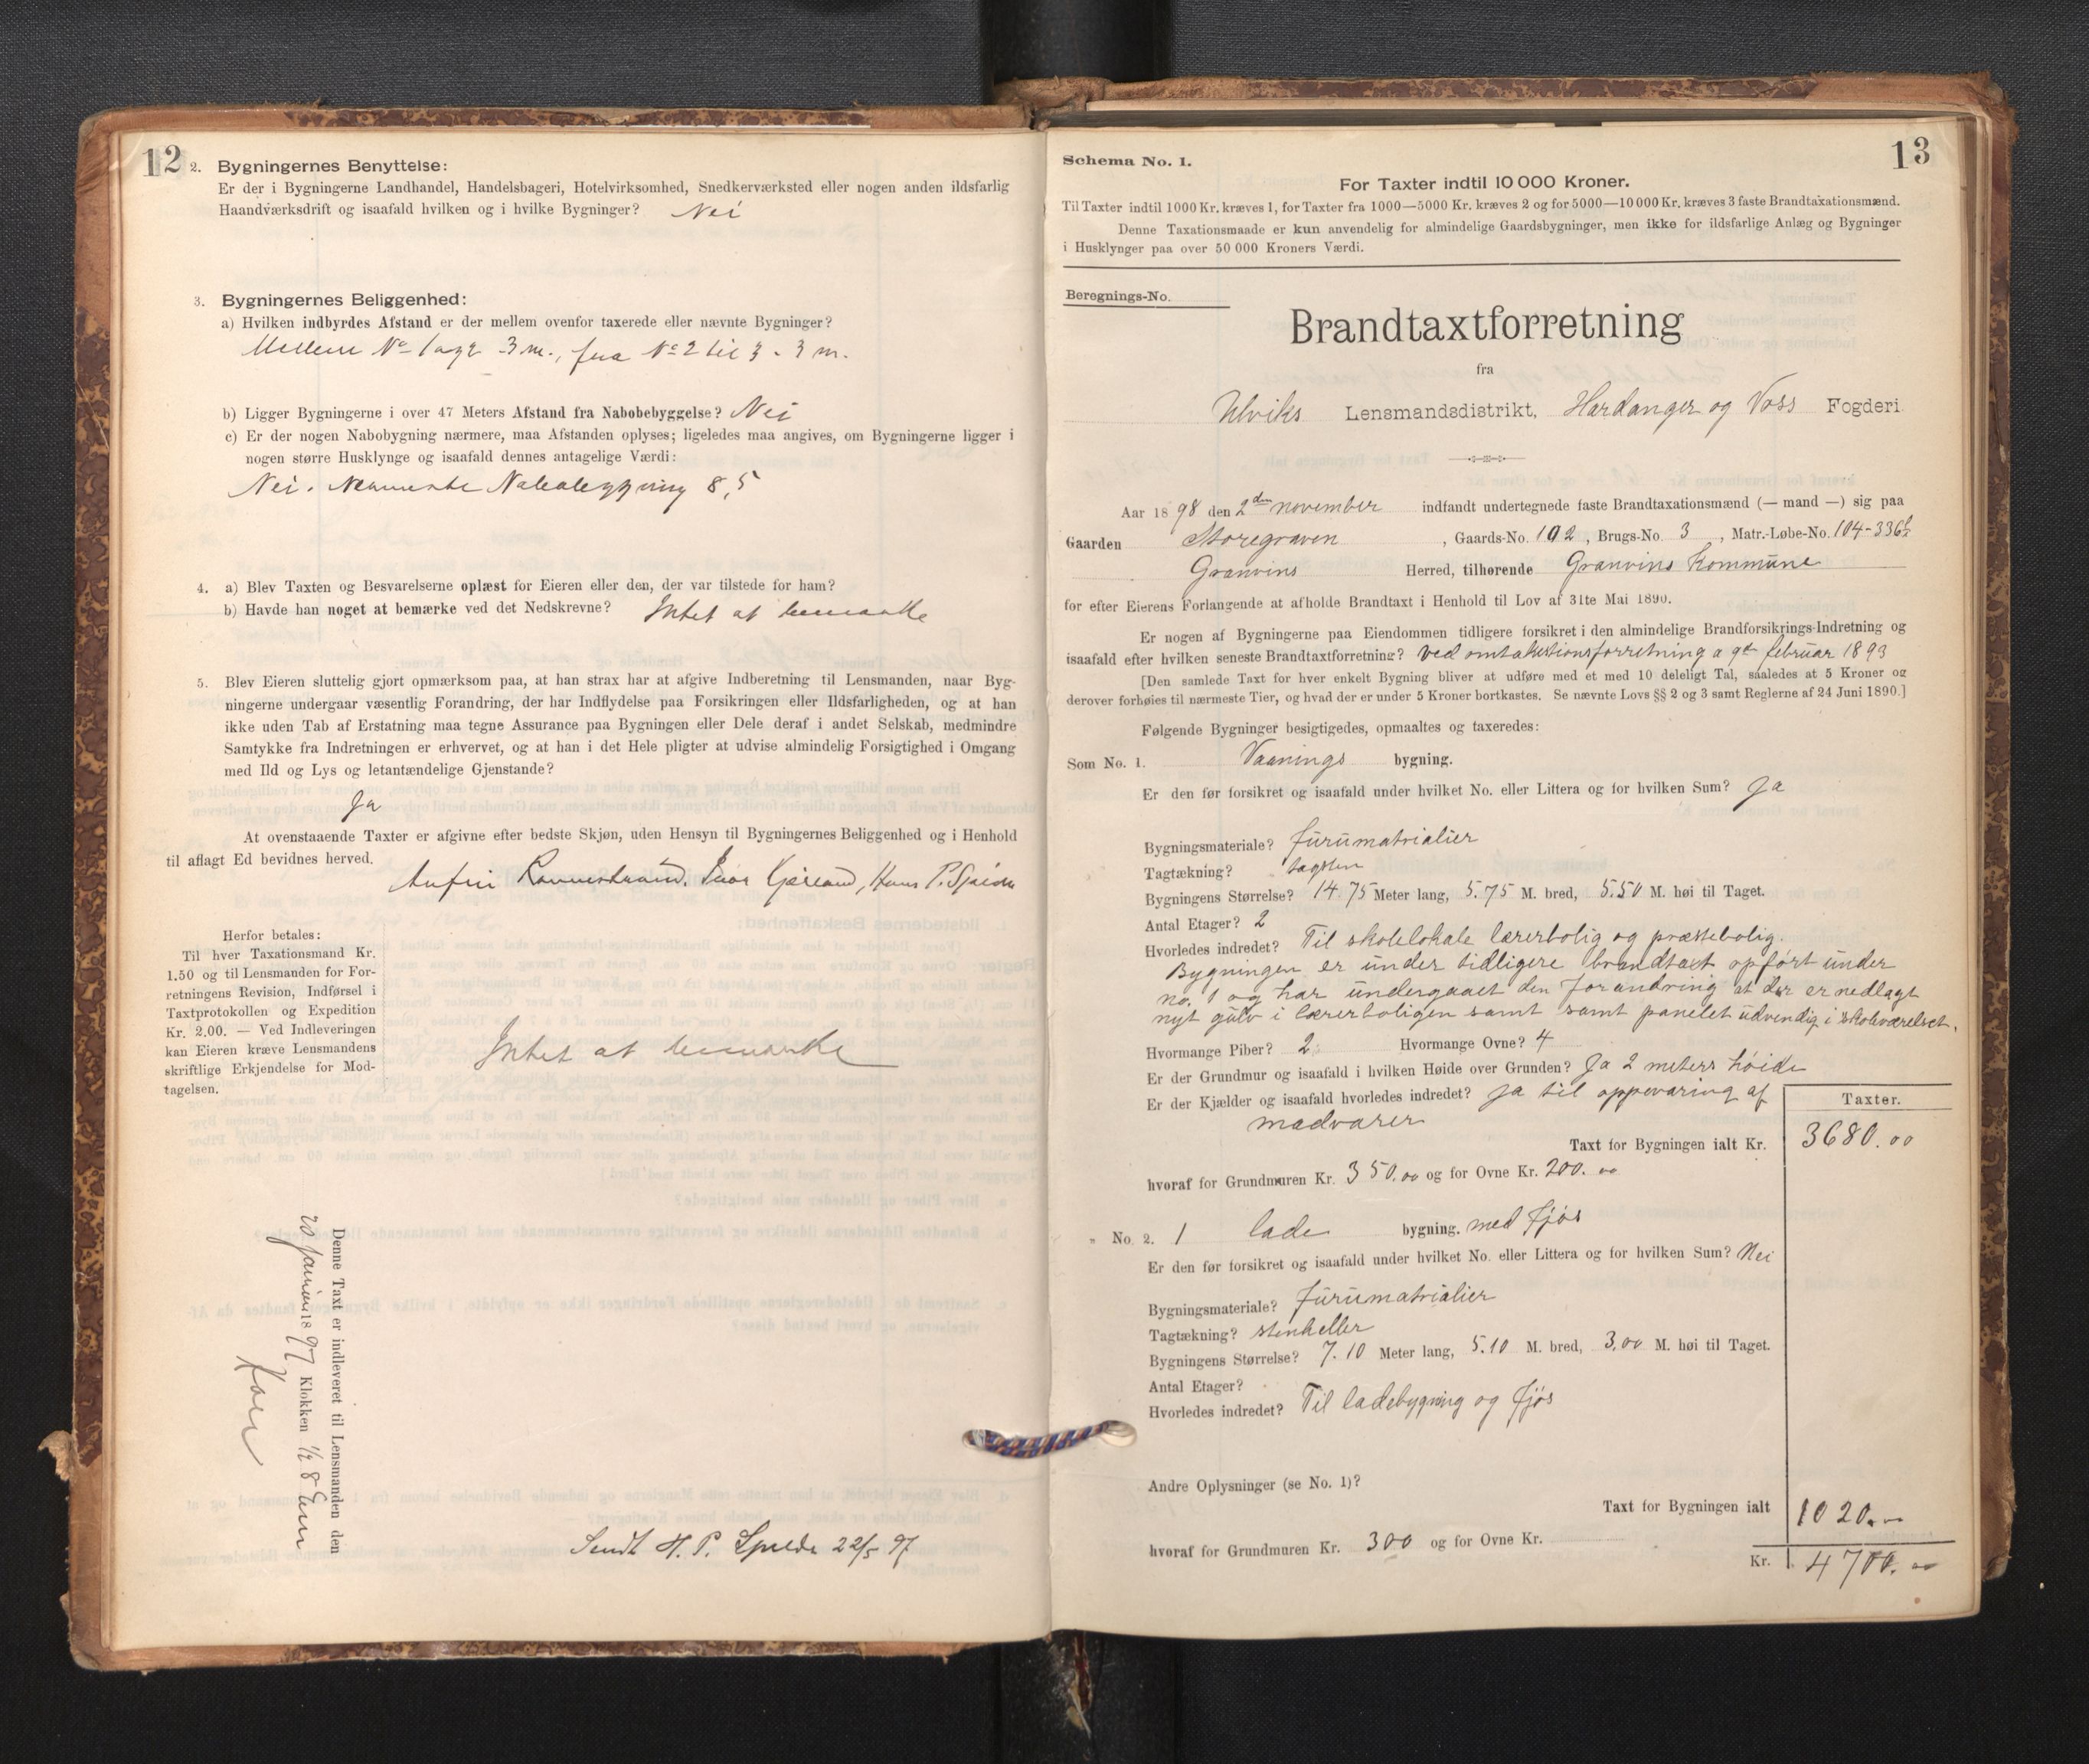 12
2. Bygningernes Benyttelse:
Er der i Bygningerne Landhandel, Handelsbageri, Hotelvirksomhed, Snedkerværksted eller nogen anden ildsfarlig
Haandværksdrift og isaafald hvilken og i hvilke Bygninger? Nei
3. Bygningernes Beliggenhed:
a) Hvilken indbyrdes Afstand er der mellem ovenfor taxerede eller nævnte Bygninger?
Mellem No 1 og 2 3 m., fra No 2 til 3 - 3 m.
b) Ligger Bygningerne i over 47 Meters Afstand fra Nabobebyggelse? Nei
c) Er der nogen Nabobygning nærmere, maa Afstanden oplyses; ligeledes maa angives, om Bygningerne ligger i
nogen større Husklynge og isaafald dennes antagelige Værdi:
Nei. Nærmeste Nabobygning 8,5
4. a) Blev Taxten og Besvarelserne oplæst for Eieren eller den, der var tilstede for ham?
b) Havde han noget at bemærke ved det Nedskrevne? Intet at bemærke
5. Blev Eieren sluttelig gjort opmærksom paa, at han strax har at afgive Indberetning til Lensmanden, naar Byg-
ningerne undergaar væsentlig Forandring, der har Indflydelse paa Forsikringen eller Ildsfarligheden, og at han
ikke uden Tab af Erstatning maa tegne Assurance paa Bygningen eller Dele deraf i andet Selskab, medmindre
Samtykke fra Indretningen er erhvervet, og at han i det Hele pligter at udvise almindelig Forsigtighed i Omgang
med Ild og Lys og letantændelige Gjenstande?
Ja
At ovenstaaende Taxter er afgivne efter bedste Skjøn, uden Hensyn til Bygningernes Beliggenhed og i Henhold
til aflagt Ed bevidnes herved.
Hans P.
Herfor betales:
Til hver Taxationsmand Kr.
1.50 og til Lensmanden for For-
retningens Revision, Indførsel i
Taxtprotokollen og Expedition
Kr. 2.00. — Ved Indleveringen
kan Eieren kræve Lensmandens
skriftlige Erkjendelse for Mod-
tagelsen.
Intet at bemærke
Denne Taxt er indleveret til Lensmanden den
20 januar 1897 Klokken 1/2 8 Em
Sendt H. P. Spilde 22/5 97
13
Schema No. 1.
For Taxter indtil 10 000 Kroner.
Til Taxter indtil 1000 Kr. kræves 1, for Taxter fra 1000—5000 Kr. kræves 2 og for 5000—10 000 Kr. kræves 3 faste Brandtaxationsmænd.
Denne Taxationsmaade er kun anvendelig for almindelige Gaardsbygninger, men ikke for ildsfarlige Anlæg og Bygninger
i Husklynger paa over 50 000 Kroners Værdi.
Beregnings-No.
Brandtaxtforretning
fra
Ulviks Lensmandsdistrikt, Hardanger og Voss Fogderi
Aar 1898 den 2den november indfandt undertegnede faste Brandtaxationsmænd (— mand —) sig paa
Gaarden Storegraven, Gaards-No. 102, Brugs-No. 3, Matr.-Løbe-No. 104-336b
Granvins Herred, tilhørende Granvins Kommune
for efter Eierens Forlangende at afholde Brandtaxt i Henhold til Lov af 31te Mai 1890.
Er nogen af Bygningerne paa Eiendommen tidligere forsikret i den almindelige Brandforsikrings-Indretning og
isaafald efter hvilken seneste Brandtaxtforretning? Ved omtakstionsforretning a 9de februar 1893
[Den samlede Taxt for hver enkelt Bygning bliver at udføre med et med 10 deleligt Tal, saaledes at 5 Kroner og
derover forhøies til nærmeste Tier, og hvad der er under 5 Kroner bortkastes. Se nævnte Lovs §§ 2 og 3 samt Reglerne af 24 Juni 1890.]
Følgende Bygninger besigtigedes, opmaaltes og taxeredes:
Som No. 1. Vaanings bygning.
Er den før forsikret og isaafald under hvilket No. eller Littera og for hvilken Sum? Ja
Bygningsmateriale? furumatrialier
Tagtækning? tagsten
Bygningens Størrelse? 14.75 Meter lang, 5.75 M. bred, 5.50 M. høi til Taget.
Antal Etager? 2
Hvorledes indredet? Til skolelokale lærerbolig og præstebolig.
Bygningen er under tidligere brandtaxt opført under
no. 1 og har undergaaet den forandring at der er nedlagt
nyt gulv i lærerboligen samt samt panelet udvendig i skoleværelset.
Hvormange Piber? 2 Hvormange Ovne? 4
Er der Grundmur og isaafald i hvilken Høide over Grunden? Ja 2 meters høide
Er der Kjælder og isaafald hvorledes indredet? Ja til oppevaring af
madvarer
Taxter.
Taxt for Bygningen ialt Kr. 3680.00
hvoraf for Grundmuren Kr. 350.00 og for Ovne Kr. 200.00
" No. 2. 1 lade bygning. med fjøs
Er den før forsikret og isaafald under hvilket No. eller Littera og for hvilken Sum? Nei
Bygningsmateriale? furumatrialier
Tagtækning? stenheller
Bygningens Størrelse? 7.10 Meter lang, 5.10 M. bred, 3.00 M. høi til Taget.
Antal Etager?
Hvorledes indredet? Til ladebygning og fjøs
Andre Oplysninger (se No. 1)?
Taxt for Bygningen ialt 1020.00
hvoraf for Grundmuren Kr. 300 og for Ovne Kr.
Kr. 4700.00